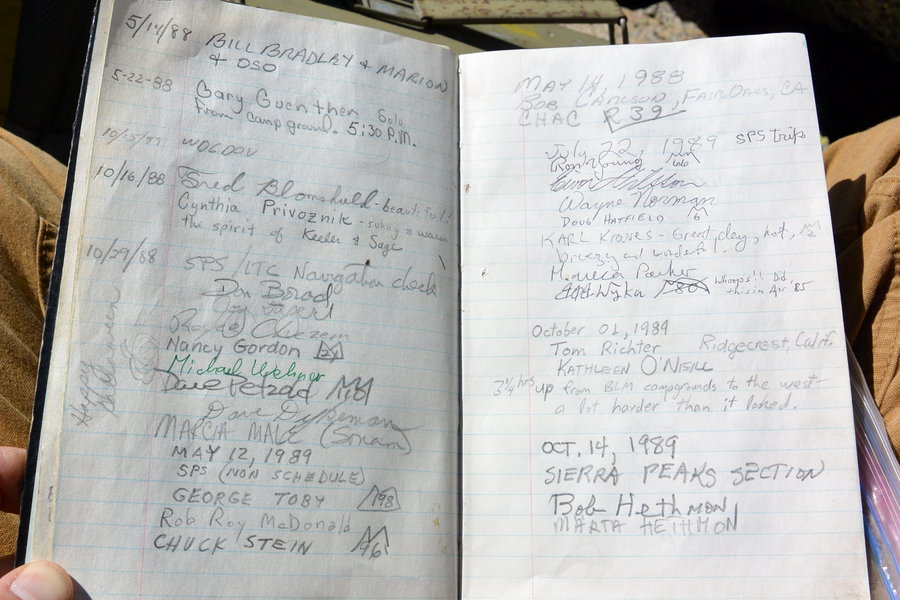 5/14/88
BILL BRADLEY & MARION
& OSO
5-22-88
Gary Guenther Solo
From campground. 5:30 P.M.
10/15/88 WOLDOV
10/16/88 Fred - beautiful!
Cynthia Privoznik - sunny & warm
the spirit of Keeler & Sage
10/29/88
SPS/LTC Navigation check
Don Borad
Nancy Gordon
Michael
Dave Petzold
Happy Halloween
Dave Dykeman
MARCIA MALE (Sonam)
MAY 12, 1989
SPS (NON SCHEDULE)
GEORGE TOBY 198
Rob Roy McDonald
CHUCK STEIN 96
MAY 14, 1988
BOB CARLSON, FAIR OAKS, CA
CHAC R 39
July 22, 1989 SPS trip
Ron Young
Wayne Norman
DOUG HATFIELD 6
KARL Kraves - Great day, hot,
breezy and wonderful.
Monica Parker
Wyka Whoops!! Did
this in Apr '85
October 01, 1989
Tom Richter Ridgecrest, Calif.
KATHLEEN O'NEILL
3 1/4 hrs up from BLM campgrounds to the west -
a lot harder than it looked.
OCT. 14, 1989
SIERRA PEAKS SECTION
Bob Hethmon
MARTA HETHMON